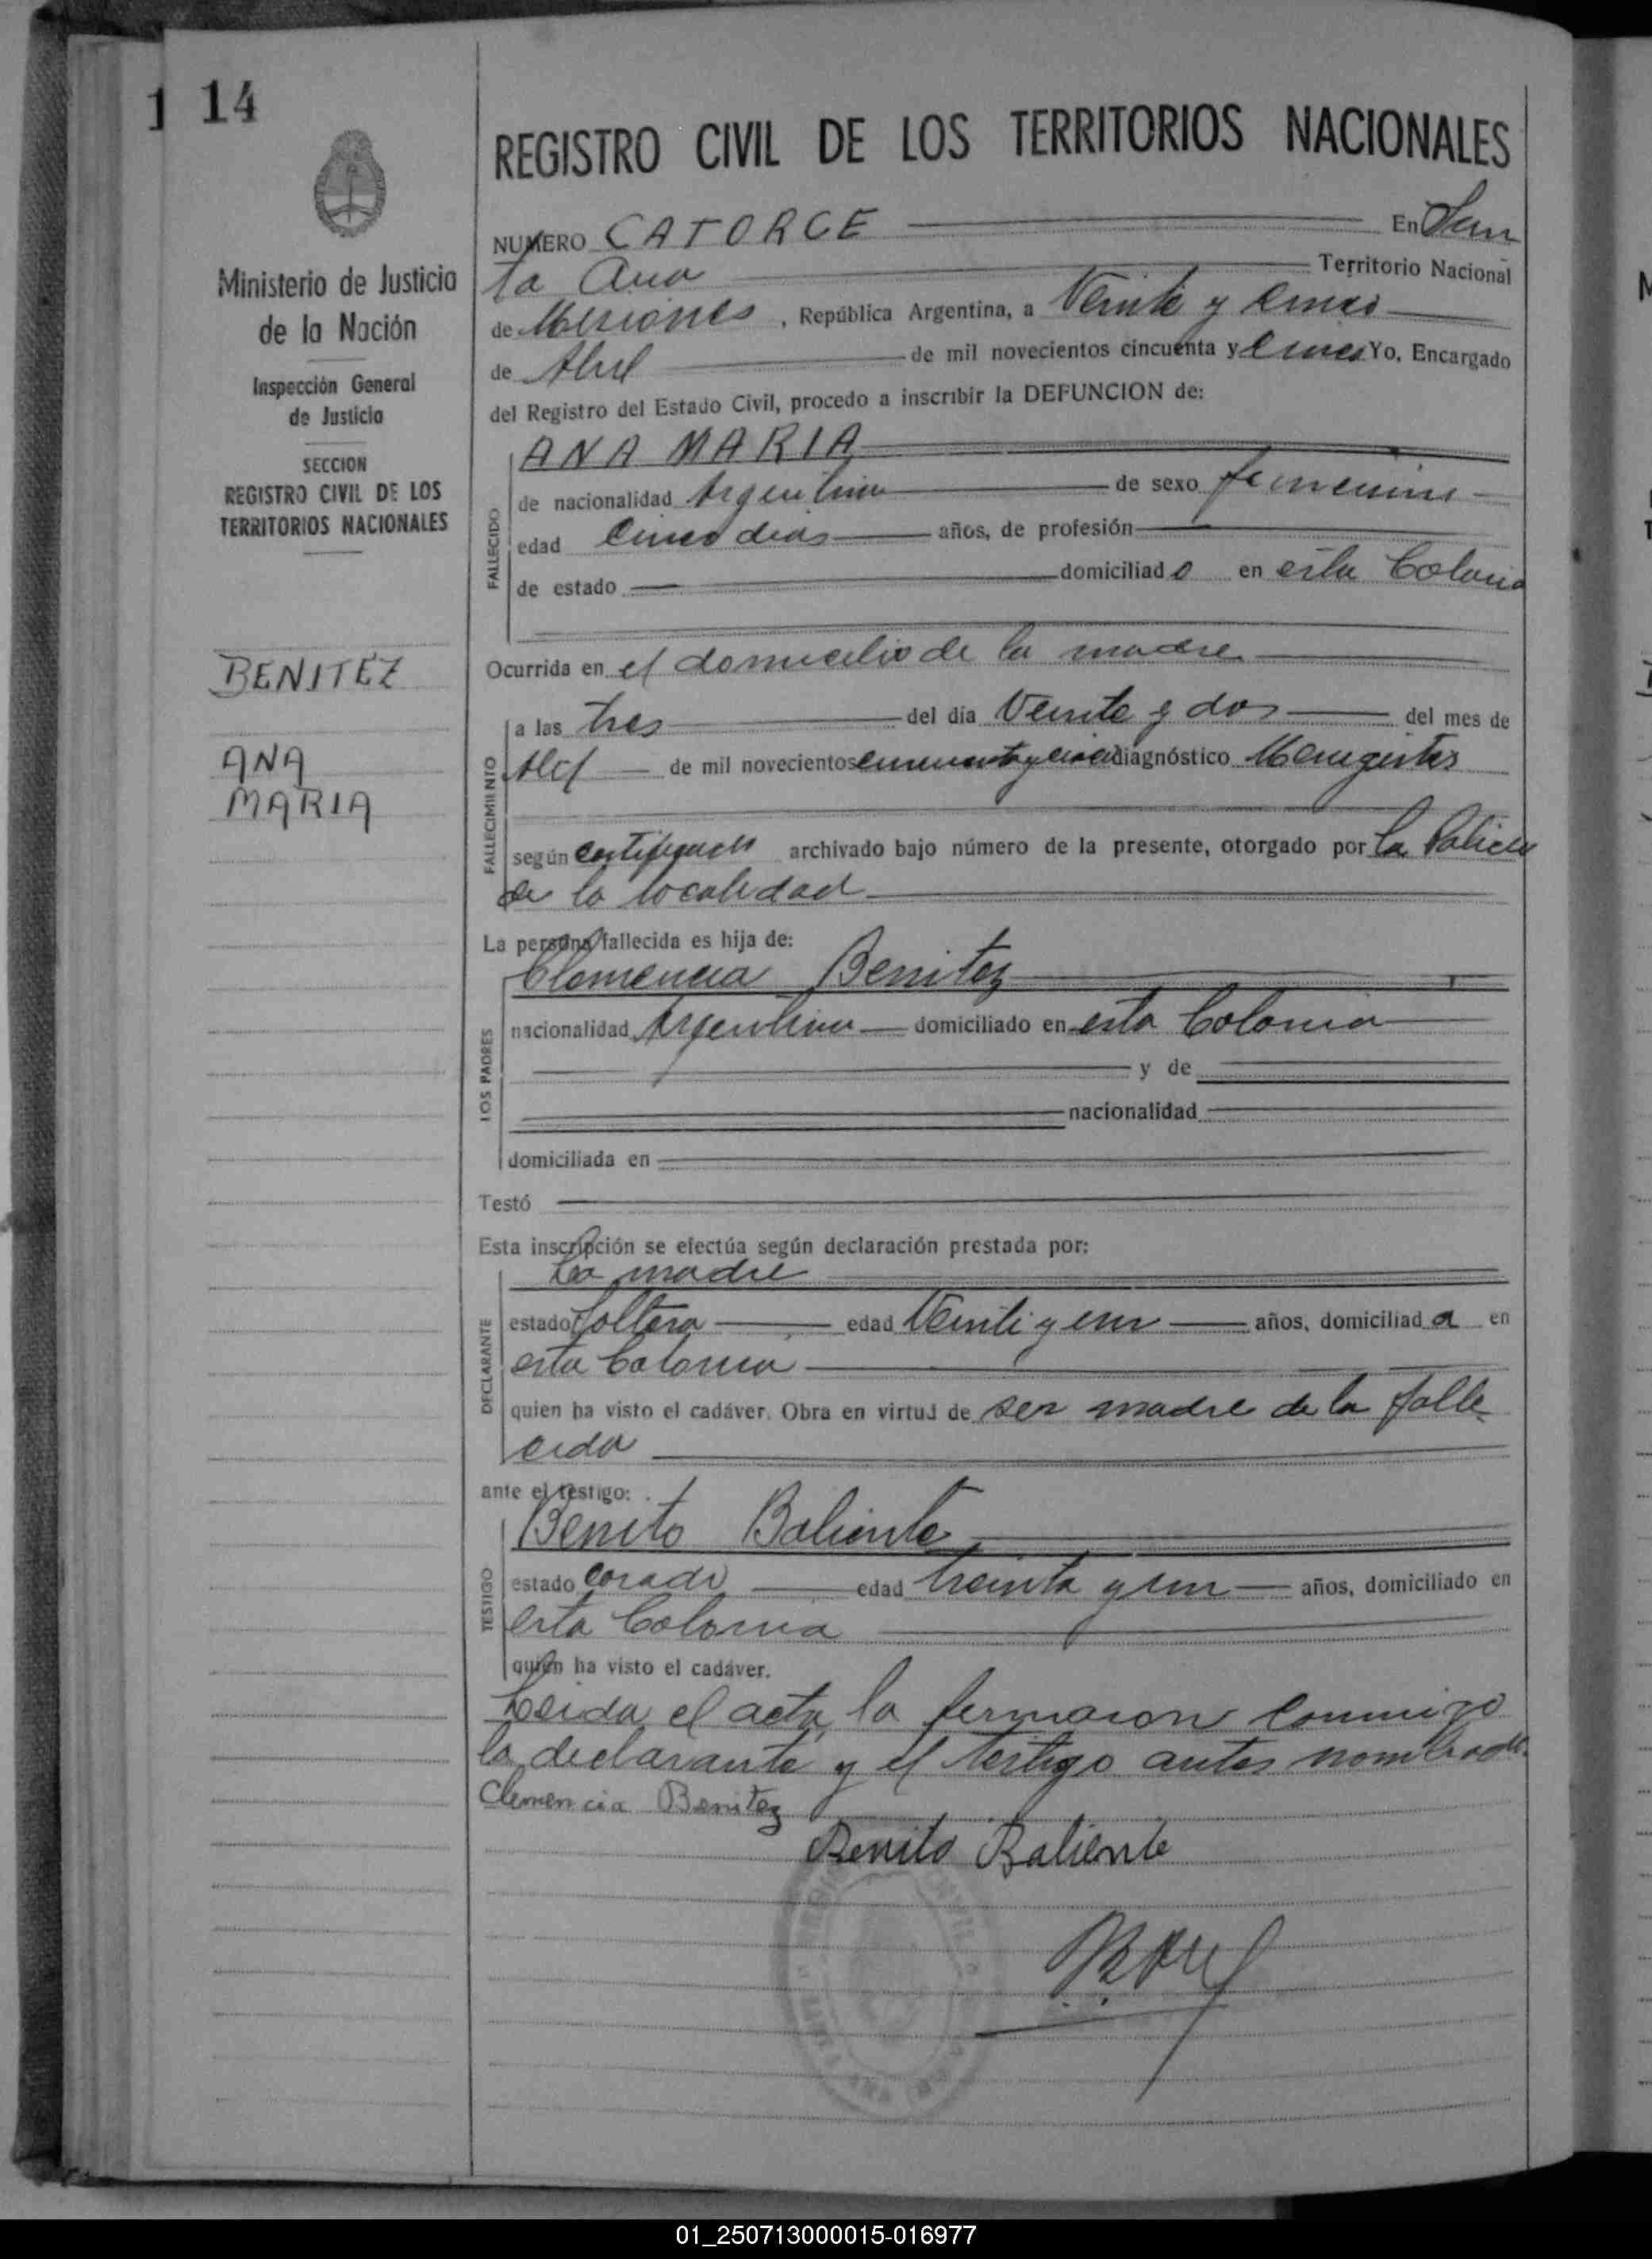 1 14
Ministerio de Justicia
de la Nación
Inspección General
de Justicia
SECCION
REGISTRO CIVIL DE LOS
TERRITORIOS NACIONALES
BENITEZ
ANA
MARIA
REGISTRO CIVIL DE LOS TERRITORIOS NACIONALES
NUMERO CATORCE En San
ta Ana Territorio Nacional
de Misiones, República Argentina, a Veinte y cinco
de Abril de mil novecientos cincuenta y cinco Yo, Encargado
del Registro del Estado Civil, procedo a inscribir la DEFUNCION de:
FALLECIDO
ANA MARIA
de nacionalidad Argentina de sexo femenino
edad Cinco dias años, de profesión
de estado domiciliado en esta Colonia
Ocurrida en el domicilio de la madre
FALLECIMIENTO
a las tres del día Veinte y dos del mes de
Abril de mil novecientos cincuenta y cinco diagnóstico Meningitis
según certificado archivado bajo número de la presente, otorgado por La Policia
de la localidad
La persona fallecida es hija de:
LOS PADRES
Clemencia Benitez
nacionalidad Argentina domiciliado en esta Colonia
y de
nacionalidad
domiciliada en
Testó
Esta inscripción se efectúa según declaración prestada por:
DECLARANTE
La madre
estado Soltera edad Veinti y un años, domiciliada en
esta Colonia
quien ha visto el cadáver. Obra en virtud de ser madre de la falle
cida
ante el testigo:
TESTIGO
Benito Baliente
estado Casado edad treinta y un años, domiciliado en
esta Colonia
quien ha visto el cadáver.
Leida el acta, la firmaron conmigo
la declarante y el testigo antes nombrado.
Clemencia Benitez
Benito Baliente
01_250713000015-016977